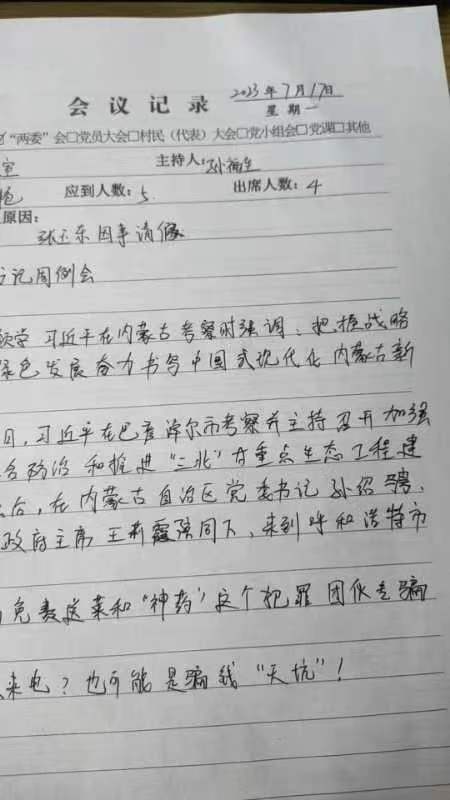 会议记录 2023年7月17日
星期一
“两委”会□党员大会□村民（代表）大会□党小组会□党课□其他
室 主持人：孙
应到人数：5 出席人数：4
原因：
张 东因事请假
记周例会
习近平在内蒙古考察时强调：把握战略
绿色发展奋力书写中国式现代化内蒙古新
日，习近平在巴彦淖尔市考察并主持召开加强
合防治和推进“三北”等重点生态工程建
后，在内蒙古自治区党委书记孙绍骋、
政府主席王莉霞陪同下，来到呼和浩特市
免费送菜和“神药”这个犯罪团伙专骗
来电？也可能是骗钱“天坑”！